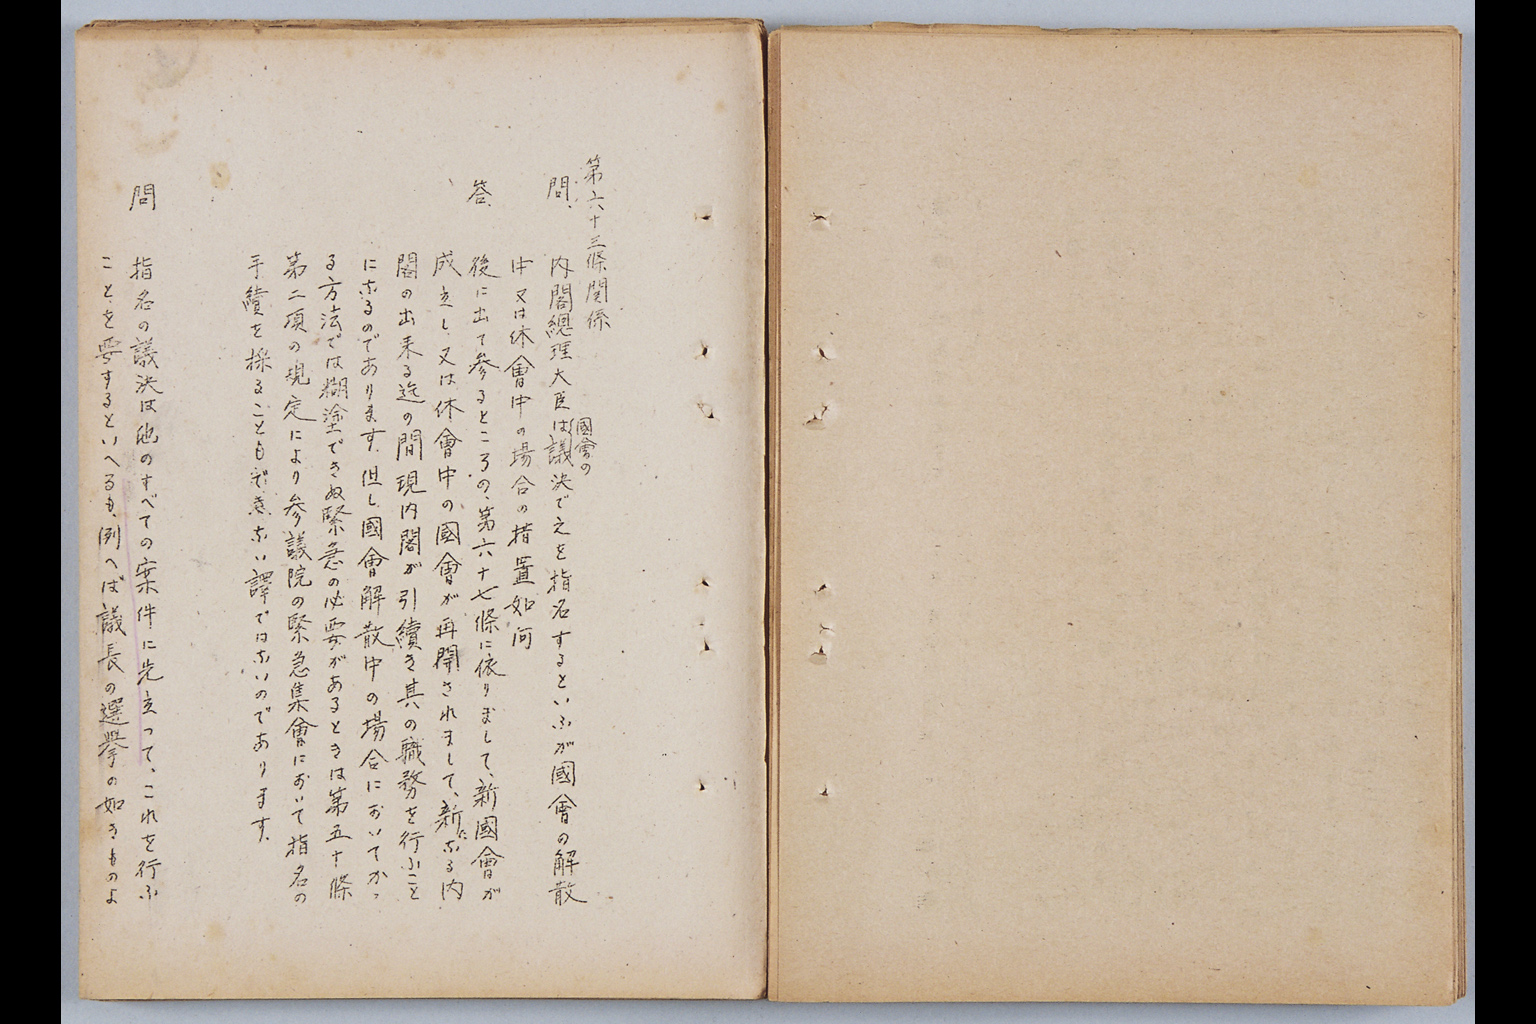 第六十三條関係
問、 内閣總理大臣は國會の議決で之を指名するといふが國會の解散
中又は休會中の場合の措置如何
答、 後に出て参るところの、第六十七條に依りまして、新國會が
成立し又は休會中の國會が再開されまして、新たなる内
閣の出来る迄の間現内閣が引續き其の職務を行ふこと
になるのであります。但し國會解散中の場合においてかゝ
る方法では糊塗できぬ緊急の必要があるときは第五十條
第二項の規定により参議院の緊急集會において指名の
手續を採ることも出来ない譯ではないのであります。
問 指名の議決は他のすべての案件に先立つて、これを行ふ
ことを要するといへるも、例へば議長の選擧の如きものよ